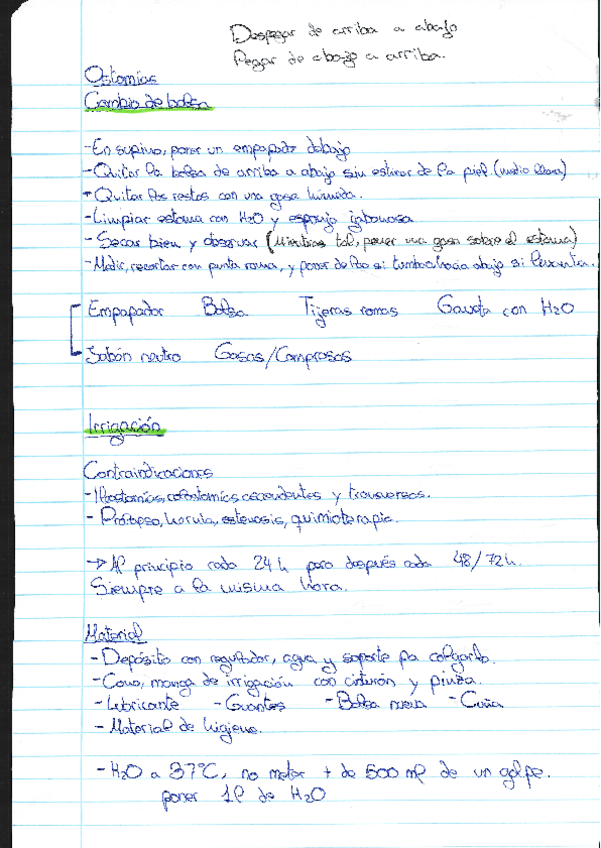 Despegar de arriba a abajo
Pegar de abajo a arriba.
Ostomías
Cambio de bolsa
- En supino, poner un empapador debajo
- Quitar la bolsa de arriba a abajo sin estirar de la piel (medio llena)
- Quitar los restos con una gasa húmeda.
- Limpiar estoma con H2O y esponja jabonosa
- Secar bien y observar (Mientras tal, poner una gasa sobre el estoma)
- Medir, recortar con punta roma, y poner de lao si tumbao/hacia abajo si levanta.
Empapador Bolsa Tijeras romas Gaveta con H2O
Jabón neutro Gasas/Compresas
Irrigación
Contraindicaciones
- Ileostomías, colostomías ascendentes y transversas.
- Prolapso, hernia, estenosis, quimioterapia.
→ Al principio cada 24 h pero después cada 48/72h.
Siempre a la misma hora.
Material
- Depósito con regulador, agua y soporte pa colgarlo.
- Cono, manga de irrigación con cinturón y pinza.
- Lubricante - Guantes - Bolsa nueva - Cuña
- Material de higiene.
- H2O a 37ºC, no meter + de 500 ml de un golpe.
poner 1l de H2O